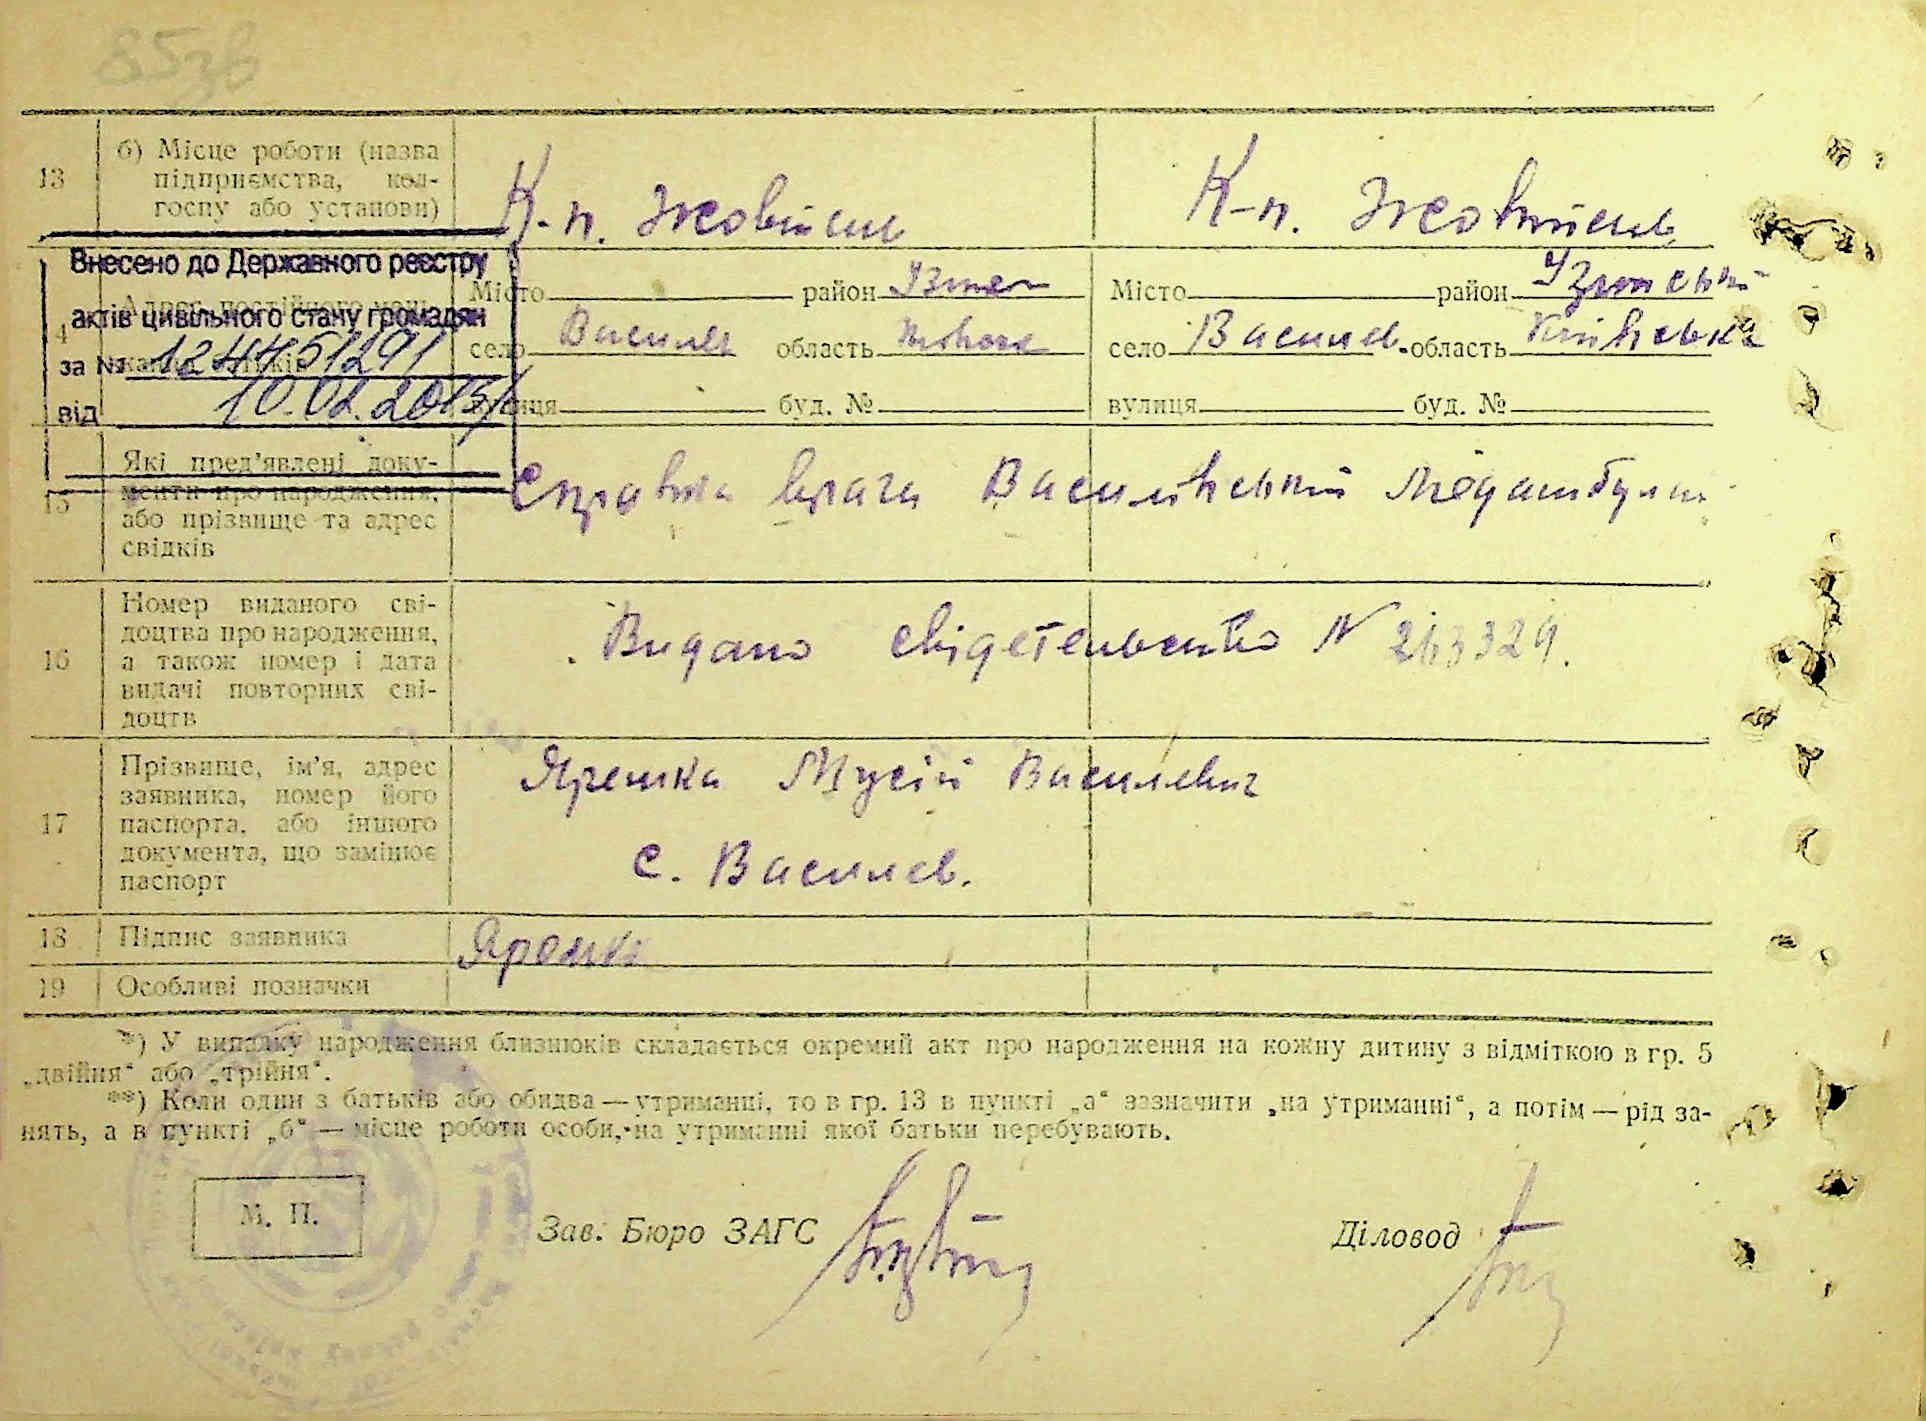 13
б) Місце роботи (назва
підприємства, кол-
госпу або установи)
К-п. Жовтень
К-п. Жовтень
Внесено до Державного реєстру
актів цивільного стану громадян
за № 124451291
від 10.02.2013
Місто район Узин
село Василів область
вулиця буд. №
Місто район Узинський
село Василев. область Київська
вулиця буд. №
15
Які пред'явлені доку-
менти про народження,
або прізвище та адрес
свідків
Справка врача Василівський
16
Номер виданого сві-
доцтва про народження,
а також номер і дата
видачі повторних сві-
доцтв
Видано свідетельство N 263329.
17
Прізвище, ім'я, адрес
заявника, номер його
паспорта, або іншого
документа, що замінює
паспорт
Яремка Мусій Василевич
с. Василев.
18
Підпис заявника
Яремка
19
Особливі позначки
*) У випадку народження близнюків складається окремий акт про народження на кожну дитину з відміткою в гр. 5
„двійня“ або „трійня“.
**) Коли один з батьків або обидва — утриманці, то в гр. 13 в пункті „а“ зазначити „на утриманні“, а потім — рід за-
нять, а в пункті „б“ — місце роботи особи, на утриманні якої батьки перебувають.
М. П.
Зав. Бюро ЗАГС
Діловод